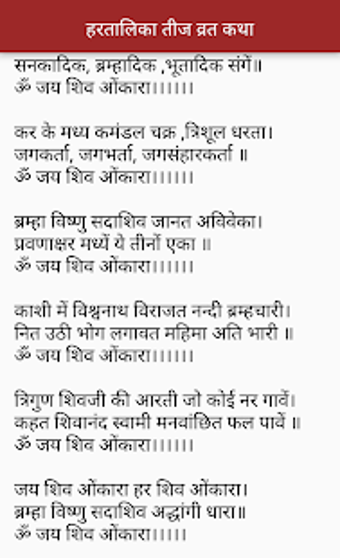 हरतालिका तीज व्रत कथा
सनकादिक, ब्रम्हादिक ,भूतादिक संगें॥
ॐ जय शिव ओंकारा।।।।।।
कर के मध्य कमंडल चक्र ,त्रिशूल धरता।
जगकर्ता, जगभर्ता, जगसंहारकर्ता ॥
ॐ जय शिव ओंकारा।।।।।।
ब्रम्हा विष्णु सदाशिव जानत अविवेका।
प्रवणाक्षर मध्यें ये तीनों एका ॥
ॐ जय शिव ओंकारा।।।।।।
काशी में विश्वनाथ विराजत नन्दी ब्रम्हचारी।
नित उठी भोग लगावत महिमा अति भारी ॥
ॐ जय शिव ओंकारा।।।।।।
त्रिगुण शिवजी की आरती जो कोई नर गावें।
कहत शिवानंद स्वामी मनवांछित फल पावें ॥
ॐ जय शिव ओंकारा।।।।।।
जय शिव ओंकारा हर शिव ओंकारा।
ब्रम्हा विष्णु सदाशिव अद्धांगी धारा॥
ॐ जय शिव ओंकारा।।।।।।